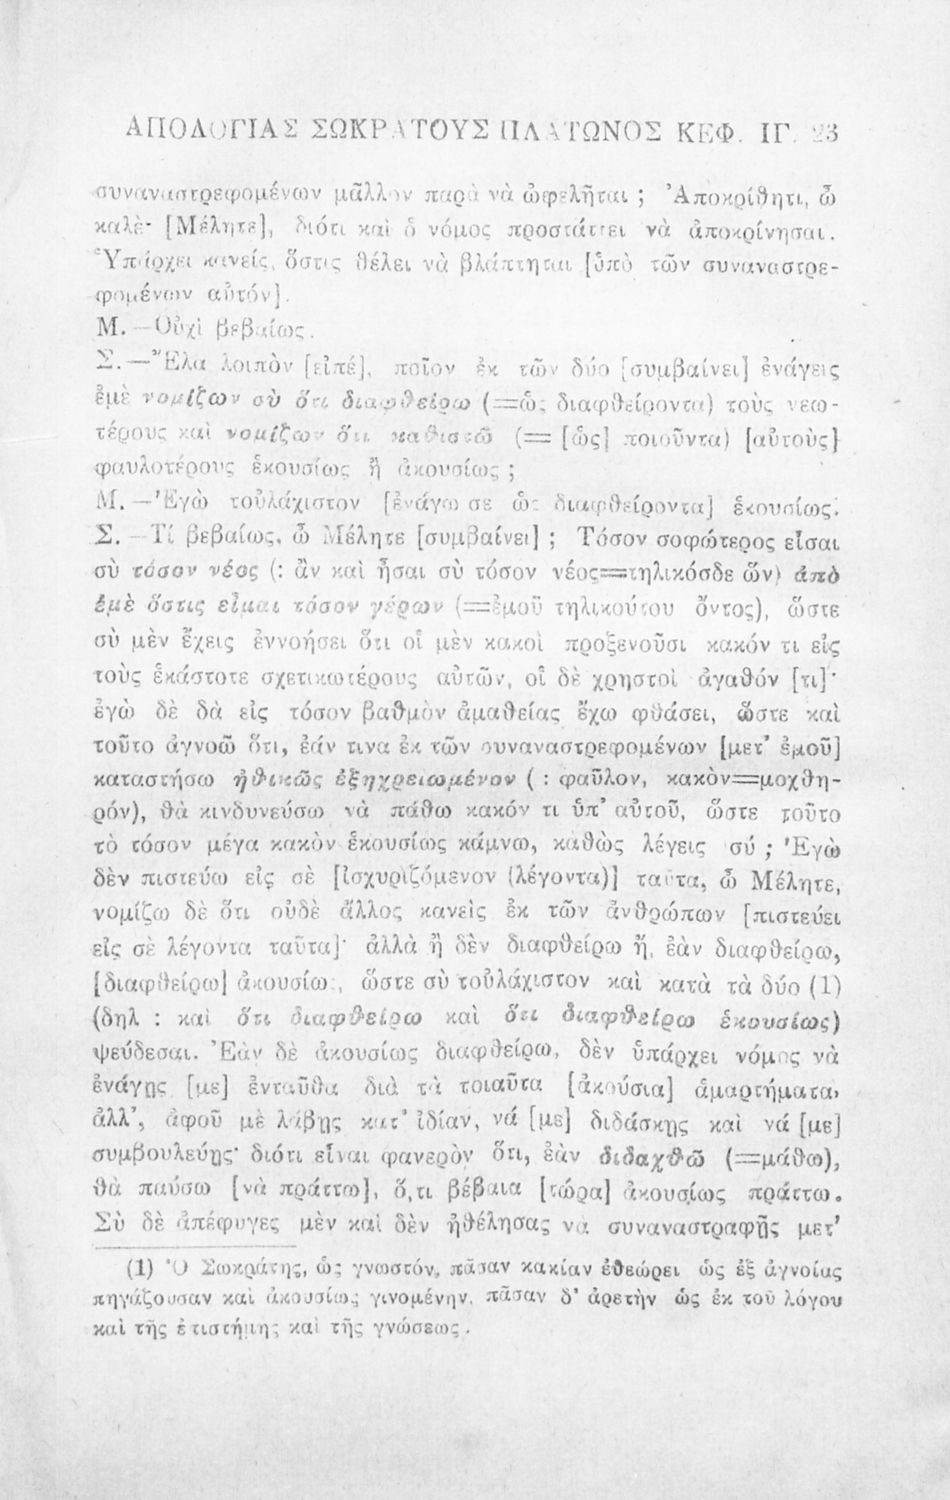 ΑΠΟΛΟΓΙΑΣ ΣΩΚΡΑΤΟΥΣ ΠΛΑΤΩΝΟΣ ΚΕΦ. ΙΓ. 23
συναναστρεφομένων μᾶλλον παρὰ νὰ ὠφελῆται ; Ἀποκρίθητι, ὦ
καλὲ· [Μέλητε], διότι καὶ ὁ νόμος προστάττει νὰ ἀποκρίνησαι.
Ὑπάρχει κανείς, ὅστις θέλει νὰ βλάπτηται [ὑπὸ τῶν συναναστρε-
φομένων αὐτόν].
Μ. —Οὐχὶ βεβαίως.
Σ.—Ἔλα λοιπὸν [εἰπέ], ποῖον ἐκ τῶν δύο [συμβαίνει] ἐνάγεις
ἐμὲ νομίζων σὺ ὅτι διαφθείρω (=ὡς διαφθείροντα) τοὺς νεω-
τέρους καὶ νομίζων ὅτι καθιστῶ (= [ὡς] ποιοῦντα) [αὐτοὺς]
φαυλοτέρους ἑκουσίως ἢ ἀκουσίως ;
Μ. —Ἐγὼ τοὐλάχιστον [ἐνάγω σε ὡς διαφθείροντα] ἑκουσίως.
Σ. —Τί βεβαίως, ὦ Μέλητε [συμβαίνει] ; Τόσον σοφώτερος εἶσαι
σὺ τόσον νέος (: ἂν καὶ ἦσαι σὺ τόσον νέος=τηλικόσδε ὤν) ἀπὸ
ἐμὲ ὅστις εἶμαι τόσον γέρων (=ἐμοῦ τηλικούτου ὄντος), ὥστε
σὺ μὲν ἔχεις ἐννοήσει ὅτι οἱ μὲν κακοὶ προξενοῦσι κακόν τι εἰς
τοὺς ἑκάστοτε σχετικωτέρους αὐτῶν, οἱ δὲ χρηστοὶ ἀγαθόν [τι]·
ἐγὼ δὲ δὰ εἰς τόσον βαθμὸν ἀμαθείας ἔχω φθάσει, ὥστε καὶ
τοῦτο ἀγνοῶ ὅτι, ἐάν τινα ἐκ τῶν συναναστρεφομένων [μετ' ἐμοῦ]
καταστήσω ἠθικῶς ἐξηχρειωμένον ( : φαῦλον, κακὸν=μοχθη-
ρόν), θὰ κινδυνεύσω νὰ πάθω κακόν τι ὑπ' αὐτοῦ, ὥστε τοῦτο
τὸ τόσον μέγα κακὸν ἑκουσίως κάμνω, καθὼς λέγεις σύ ; Ἐγὼ
δὲν πιστεύω εἰς σὲ [ἰσχυριζόμενον (λέγοντα)] ταῦτα, ὦ Μέλητε,
νομίζω δὲ ὅτι οὐδὲ ἄλλος κανεὶς ἐκ τῶν ἀνθρώπων [πιστεύει
εἰς σὲ λέγοντα ταῦτα]· ἀλλὰ ἢ δὲν διαφθείρω ἤ, ἐὰν διαφθείρω,
[διαφθείρω] ἀκουσίως, ὥστε σὺ τοὐλάχιστον καὶ κατὰ τὰ δύο (1)
(δηλ : καὶ ὅτι διαφθείρω καὶ ὅτι διαφθείρω ἑκουσίως)
ψεύδεσαι. Ἐὰν δὲ ἀκουσίως διαφθείρω, δὲν ὑπάρχει νόμος νὰ
ἐνάγῃς [με] ἐνταῦθα διὰ τὰ τοιαῦτα [ἀκούσια] ἁμαρτήματα,
ἀλλ', ἀφοῦ μὲ λάβῃς κατ' ἰδίαν, νά [με] διδάσκῃς καὶ νά [με]
συμβουλεύῃς· διότι εἶναι φανερὸν ὅτι, ἐὰν διδαχθῶ (=μάθω),
θὰ παύσω [νὰ πράττω], ὅ,τι βέβαια [τώρα] ἀκουσίως πράττω.
Σὺ δὲ ἀπέφυγες μὲν καὶ δὲν ἠθέλησας νὰ συναναστραφῇς μετ'
(1) Ὁ Σωκράτης, ὡς γνωστόν, πᾶσαν κακίαν ἐθεώρει ὡς ἐξ ἀγνοίας
πηγάζουσαν καὶ ἀκουσίως γινομένην, πᾶσαν δ' ἀρετὴν ὡς ἐκ τοῦ λόγου
καὶ τῆς ἐπιστήμης καὶ τῆς γνώσεως.